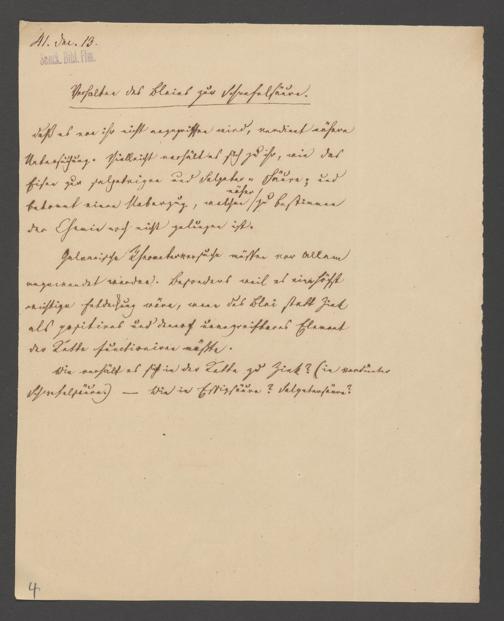 41. Dec. 13.
Senck. Bibl. Ffm.
Verhalten des Bleies zur Schwefelsäure.
Daß es von ihr nicht angegriffen wird, verdient nähere
Untersuchung. Vielleicht verhält es sich zu ihr, wie das
Eisen zur salpetrigen und Salpeter-Säure; und
bekommt einen Ueberzug, welchen näher zu bestimmen
der Chemie noch nicht gelungen ist.
Galvanische Versuche müssen vor Allem
angewendet werden. Besonders weil es eine höchst
wichtige Entdeckung wäre, wenn das Blei statt Zink
als positives und darauf unangreifbares Element
der Kette functioniren müßte.
Wie verhält es sich in der Kette zu Zink? (in verdünnter
Schwefelsäure) — Wie in Essigsäure? Salpetersäure?
4